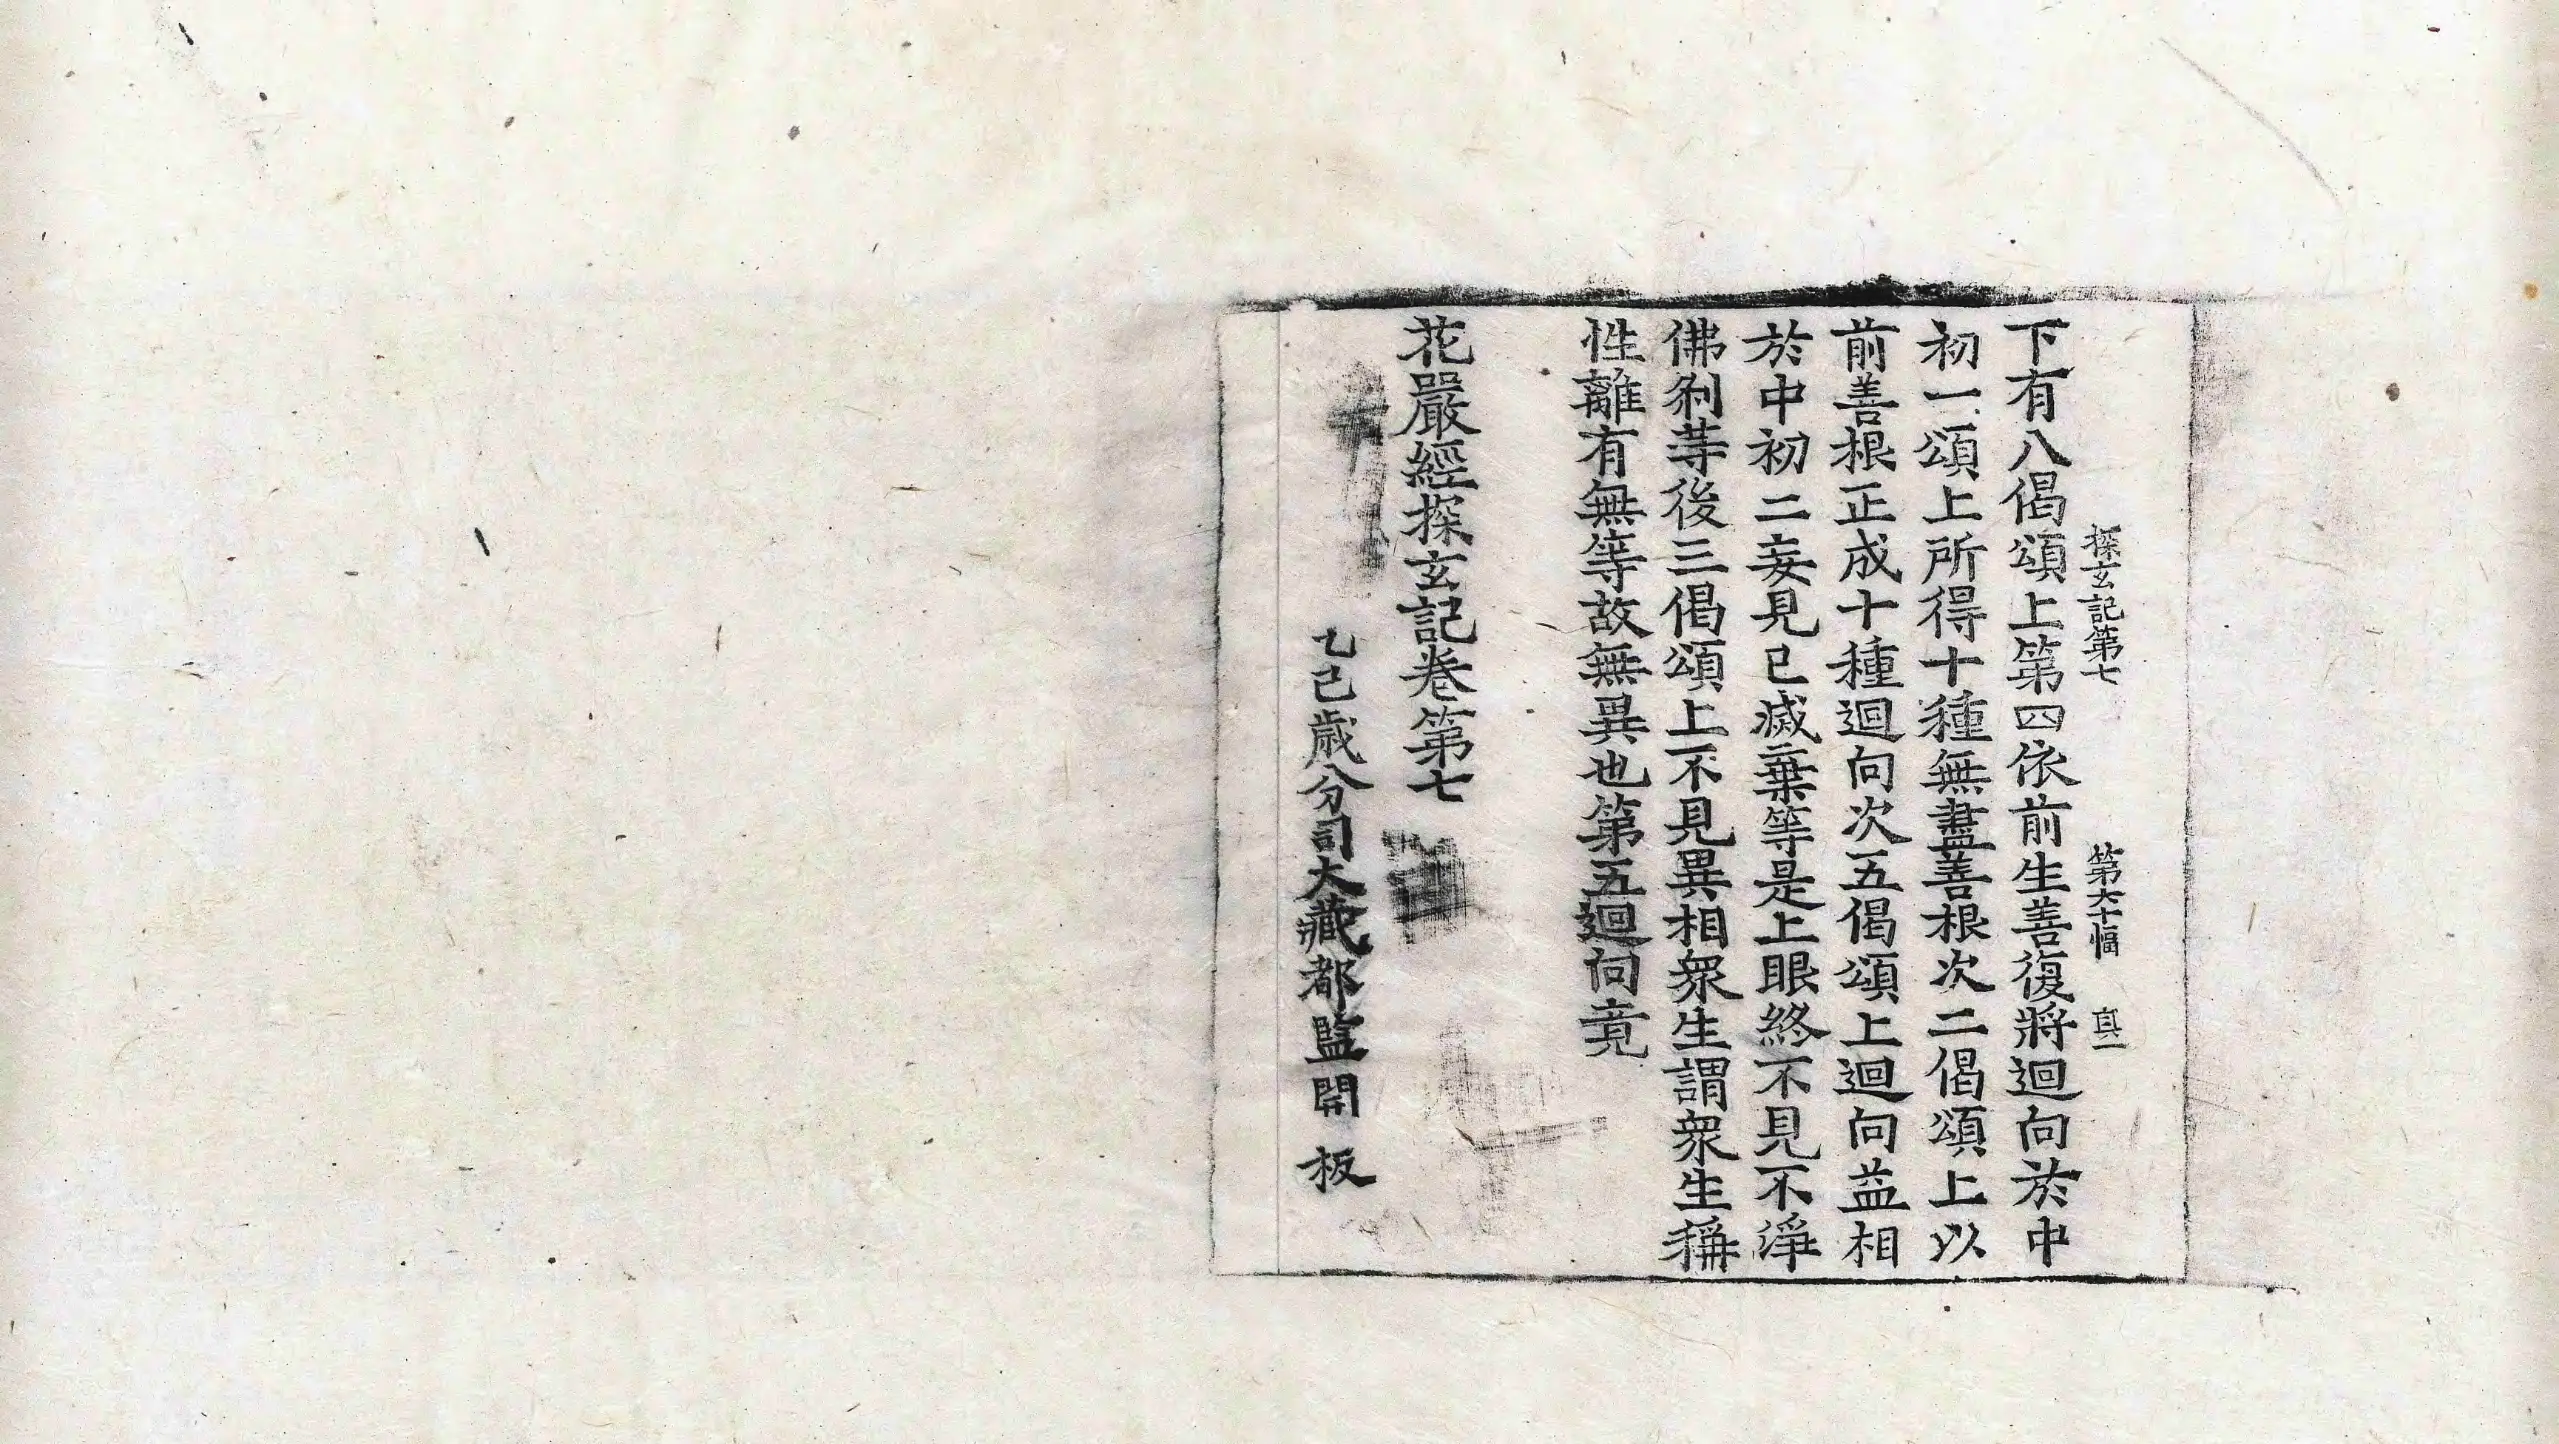 探玄記第七 第六十幅 真一
下有八偈頌上第四依前生善復將迴向於中
初一頌上所得十種無盡善根次二偈頌上以
前善根正成十種迴向次五偈頌上迴向益相
於中初二妄見已滅棄等是上眼終不見不淨
佛刹䓁後三偈頌上不見異相衆生謂衆生稱
性離有無等故無異也第五迴向竟
花嚴經探玄記卷第七
乙巳歲分司大藏都監開板